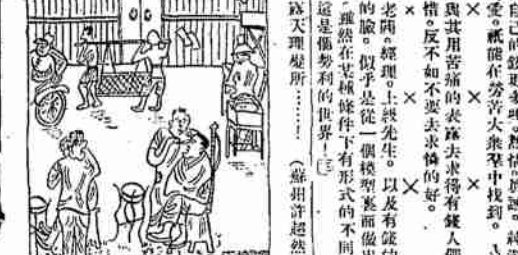 自己的
愛。祇能在勞苦大衆羣中找到。
× ×
與其用苦痛的表露去求得有錢人們
惜。反不如不要去求憐的好。
× × ×
老闆。經理。上級先生。以及有錢的
的臉。似乎是從一個模型裏面做出
雖然在某種條件下有形式的不同
這是個勢利的世界！
露天理髮所……！（蘇州許超然